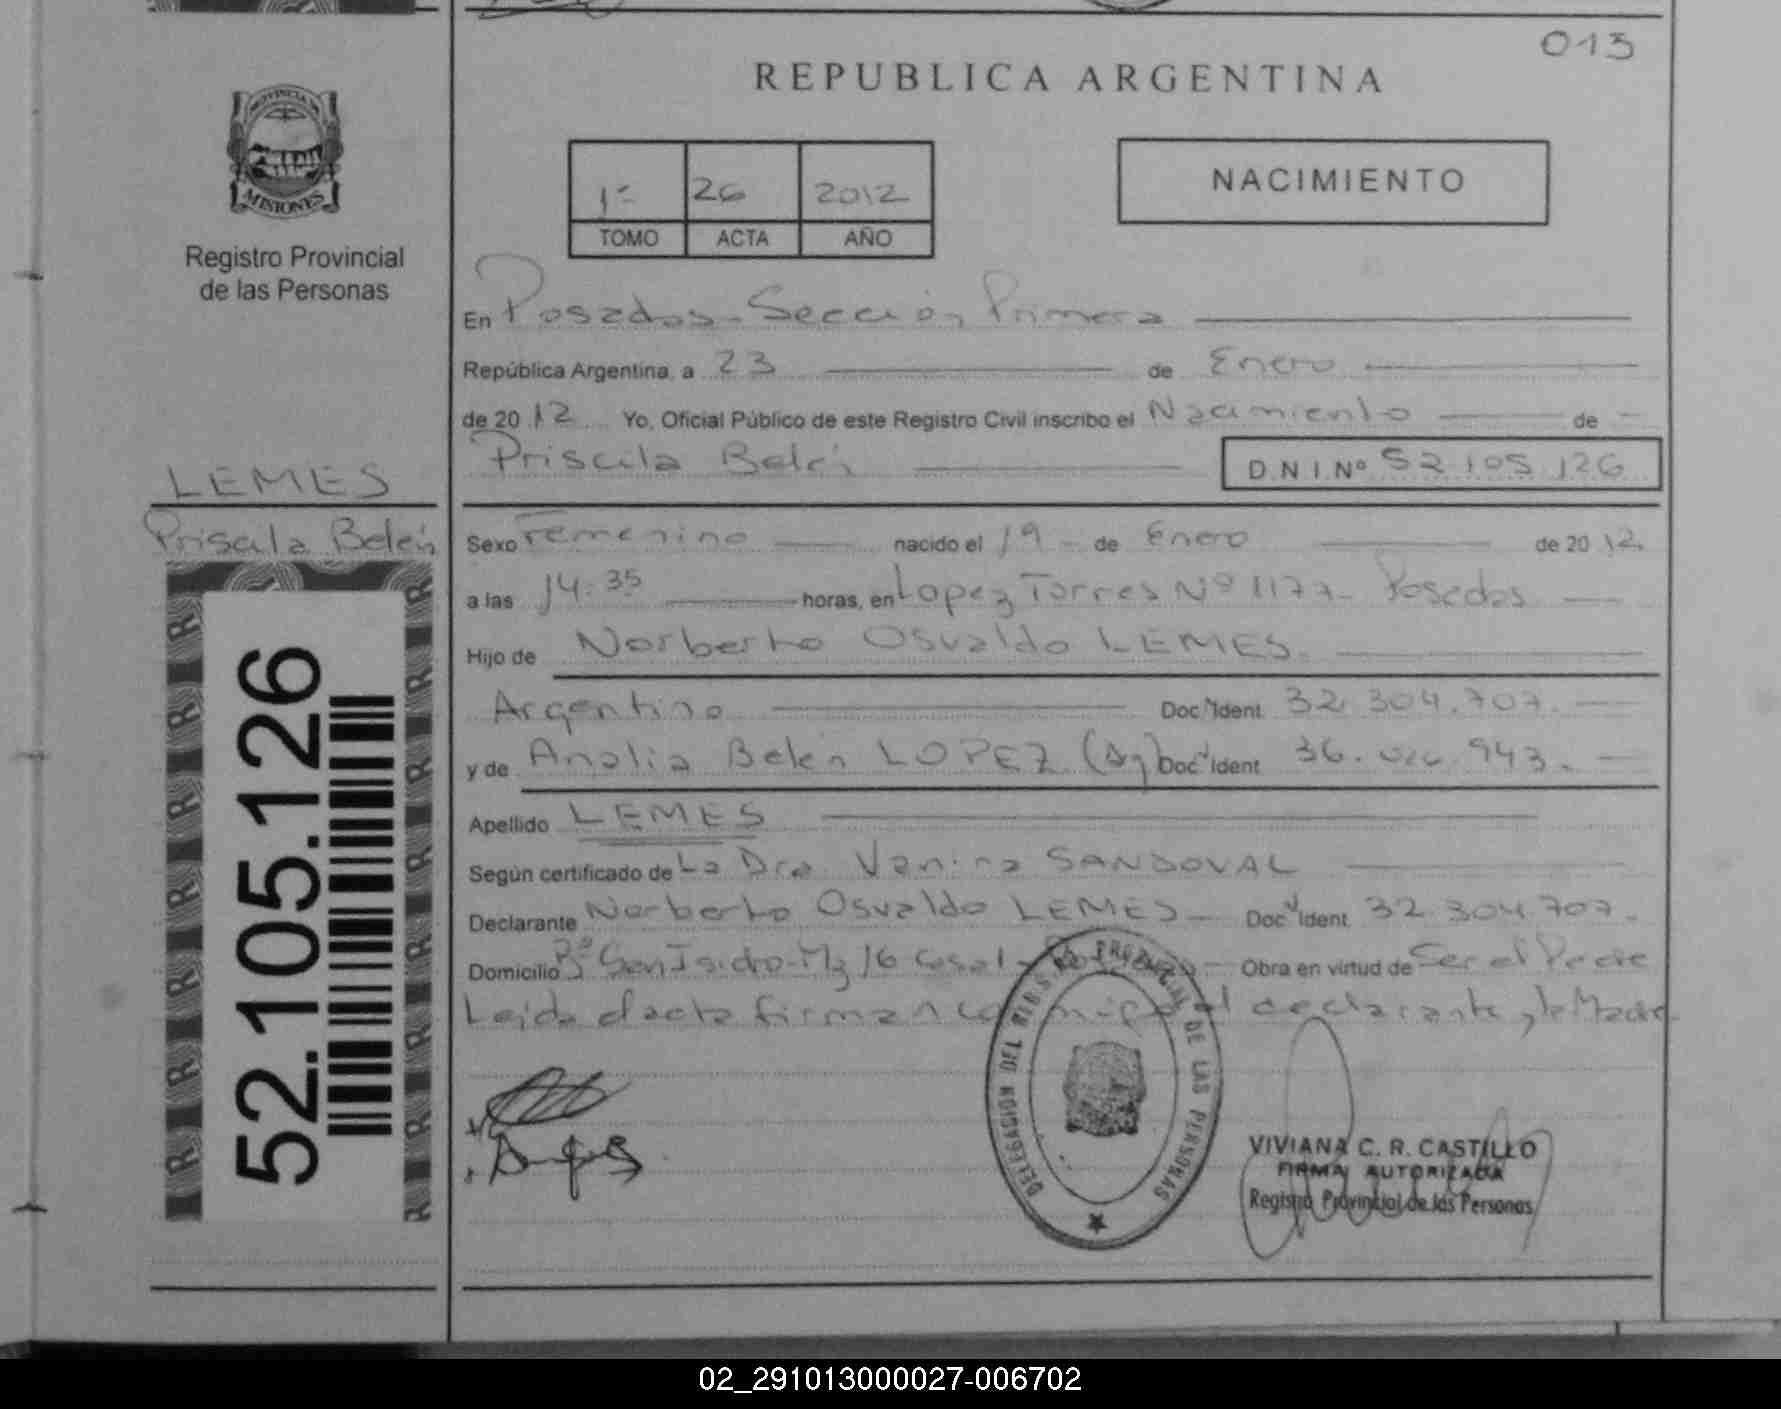 013
REPUBLICA ARGENTINA
PROVINCIA DE
MISIONES
Registro Provincial
de las Personas
1º 26 2012
TOMO ACTA AÑO
NACIMIENTO
En Posadas - Sección Primera
República Argentina, a 23 de Enero
de 2012 Yo, Oficial Público de este Registro Civil inscribo el Nacimiento de
Priscila Belén D.N.I.Nº 52.105.126
LEMES
Priscila Belén
Sexo Femenino nacido el 19 de Enero de 2012
a las 14:35 horas, en Lopez Torres Nº 1177 - Posadas
Hijo de Norberto Osvaldo LEMES.
Argentino Doc. Ident. 32.304.707.
y de Analia Belén LOPEZ (Ag) Doc. Ident. 36. 943.
Apellido LEMES
Según certificado de La Dra Vanina SANDOVAL
Declarante Norberto Osvaldo LEMES - Doc. Ident. 32.304.707.
Domicilio Bº San Isidro - Mz 16 Casa 1 - Obra en virtud de Ser el Padre
Leida el acta firman el declarante y la Madre.
52.105.126
DELEGACION DEL REGISTRO PROVINCIAL DE LAS PERSONAS
VIVIANA C. R. CASTILLO
FIRMA AUTORIZADA
Registro Provincial de las Personas
02_291013000027-006702